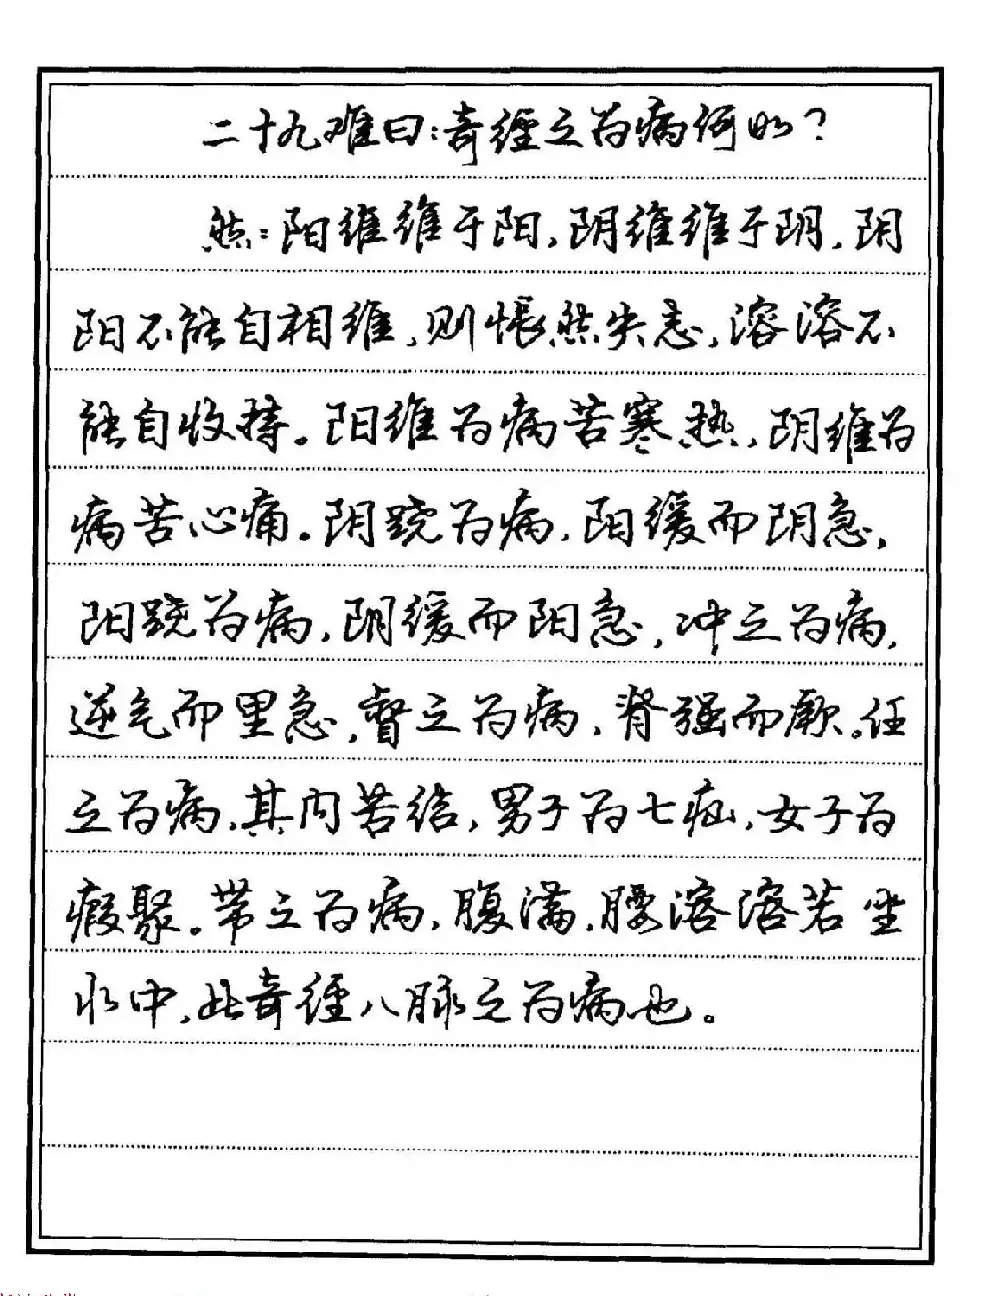 二十九难曰:奇经之为病何如?
然:阳维维于阳,阴维维于阴,阴
阳不能自相维,则怅然失志,溶溶不
能自收持。阳维为病苦寒热,阴维为
病苦心痛。阴跷为病,阳缓而阴急,
阳跷为病,阴缓而阳急,冲之为病,
逆气而里急,督之为病,脊强而厥。任
之为病,其内苦结,男子为七疝,女子为
瘕聚。带之为病,腹满,腰溶溶若坐
水中,此奇经八脉之为病也。